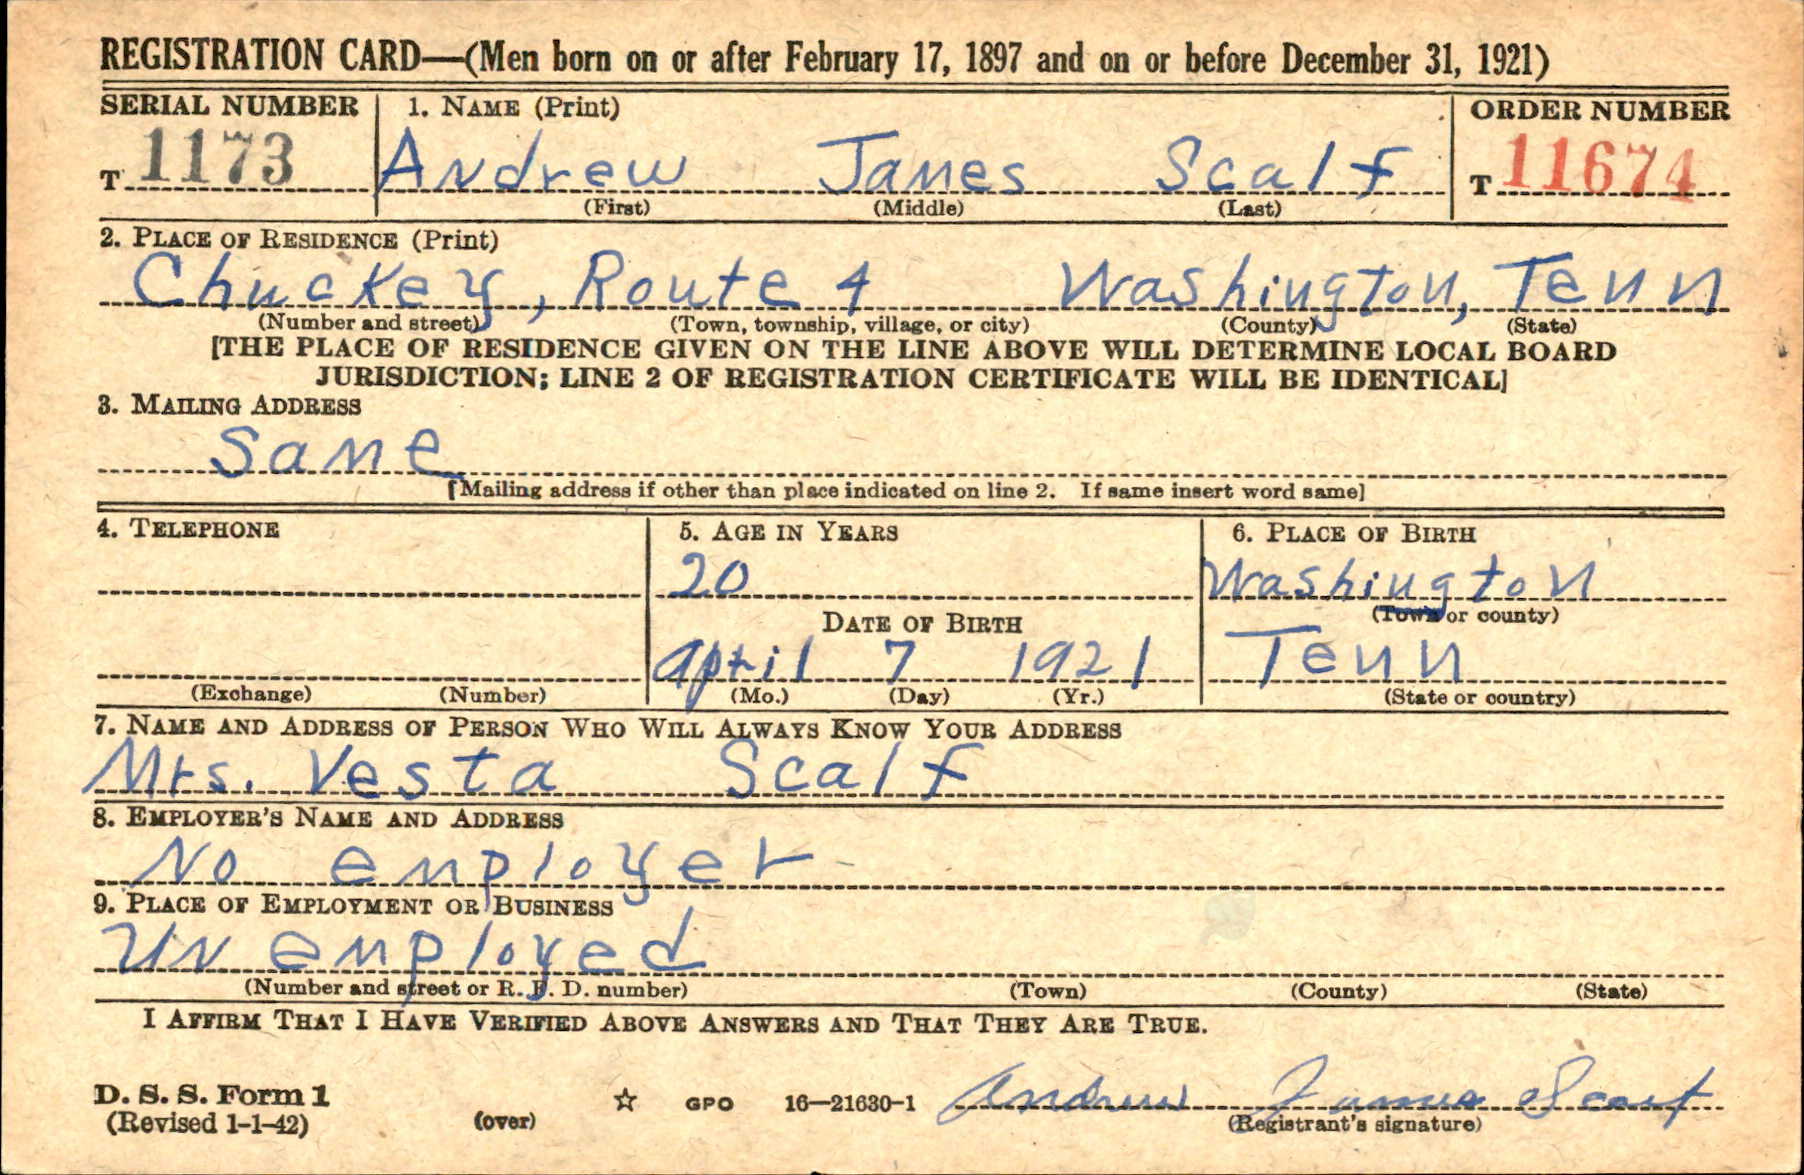 REGISTRATION CARD—(Men born on or after February 17, 1897 and on or before December 31, 1921)
SERIAL NUMBER 1. NAME (Print) ORDER NUMBER
T 1173 Andrew James Scalf T 11674
(First) (Middle) (Last)
2. PLACE OF RESIDENCE (Print)
Chuckey, Route 4 Washington, Tenn
(Number and street) (Town, township, village, or city) (County) (State)
[THE PLACE OF RESIDENCE GIVEN ON THE LINE ABOVE WILL DETERMINE LOCAL BOARD
JURISDICTION; LINE 2 OF REGISTRATION CERTIFICATE WILL BE IDENTICAL]
3. MAILING ADDRESS
Same
[Mailing address if other than place indicated on line 2. If same insert word same]
4. TELEPHONE 5. AGE IN YEARS 6. PLACE OF BIRTH
20 Washington
DATE OF BIRTH (Town or county)
April 7 1921 Tenn
(Exchange) (Number) (Mo.) (Day) (Yr.) (State or country)
7. NAME AND ADDRESS OF PERSON WHO WILL ALWAYS KNOW YOUR ADDRESS
Mrs. Vesta Scalf
8. EMPLOYER'S NAME AND ADDRESS
No employer
9. PLACE OF EMPLOYMENT OR BUSINESS
Un employed
(Number and street or R. F. D. number) (Town) (County) (State)
I AFFIRM THAT I HAVE VERIFIED ABOVE ANSWERS AND THAT THEY ARE TRUE.
D. S. S. Form 1
(Revised 1-1-42) (over) ☆ GPO 16—21630-1 Andrew James Scalf
(Registrant's signature)